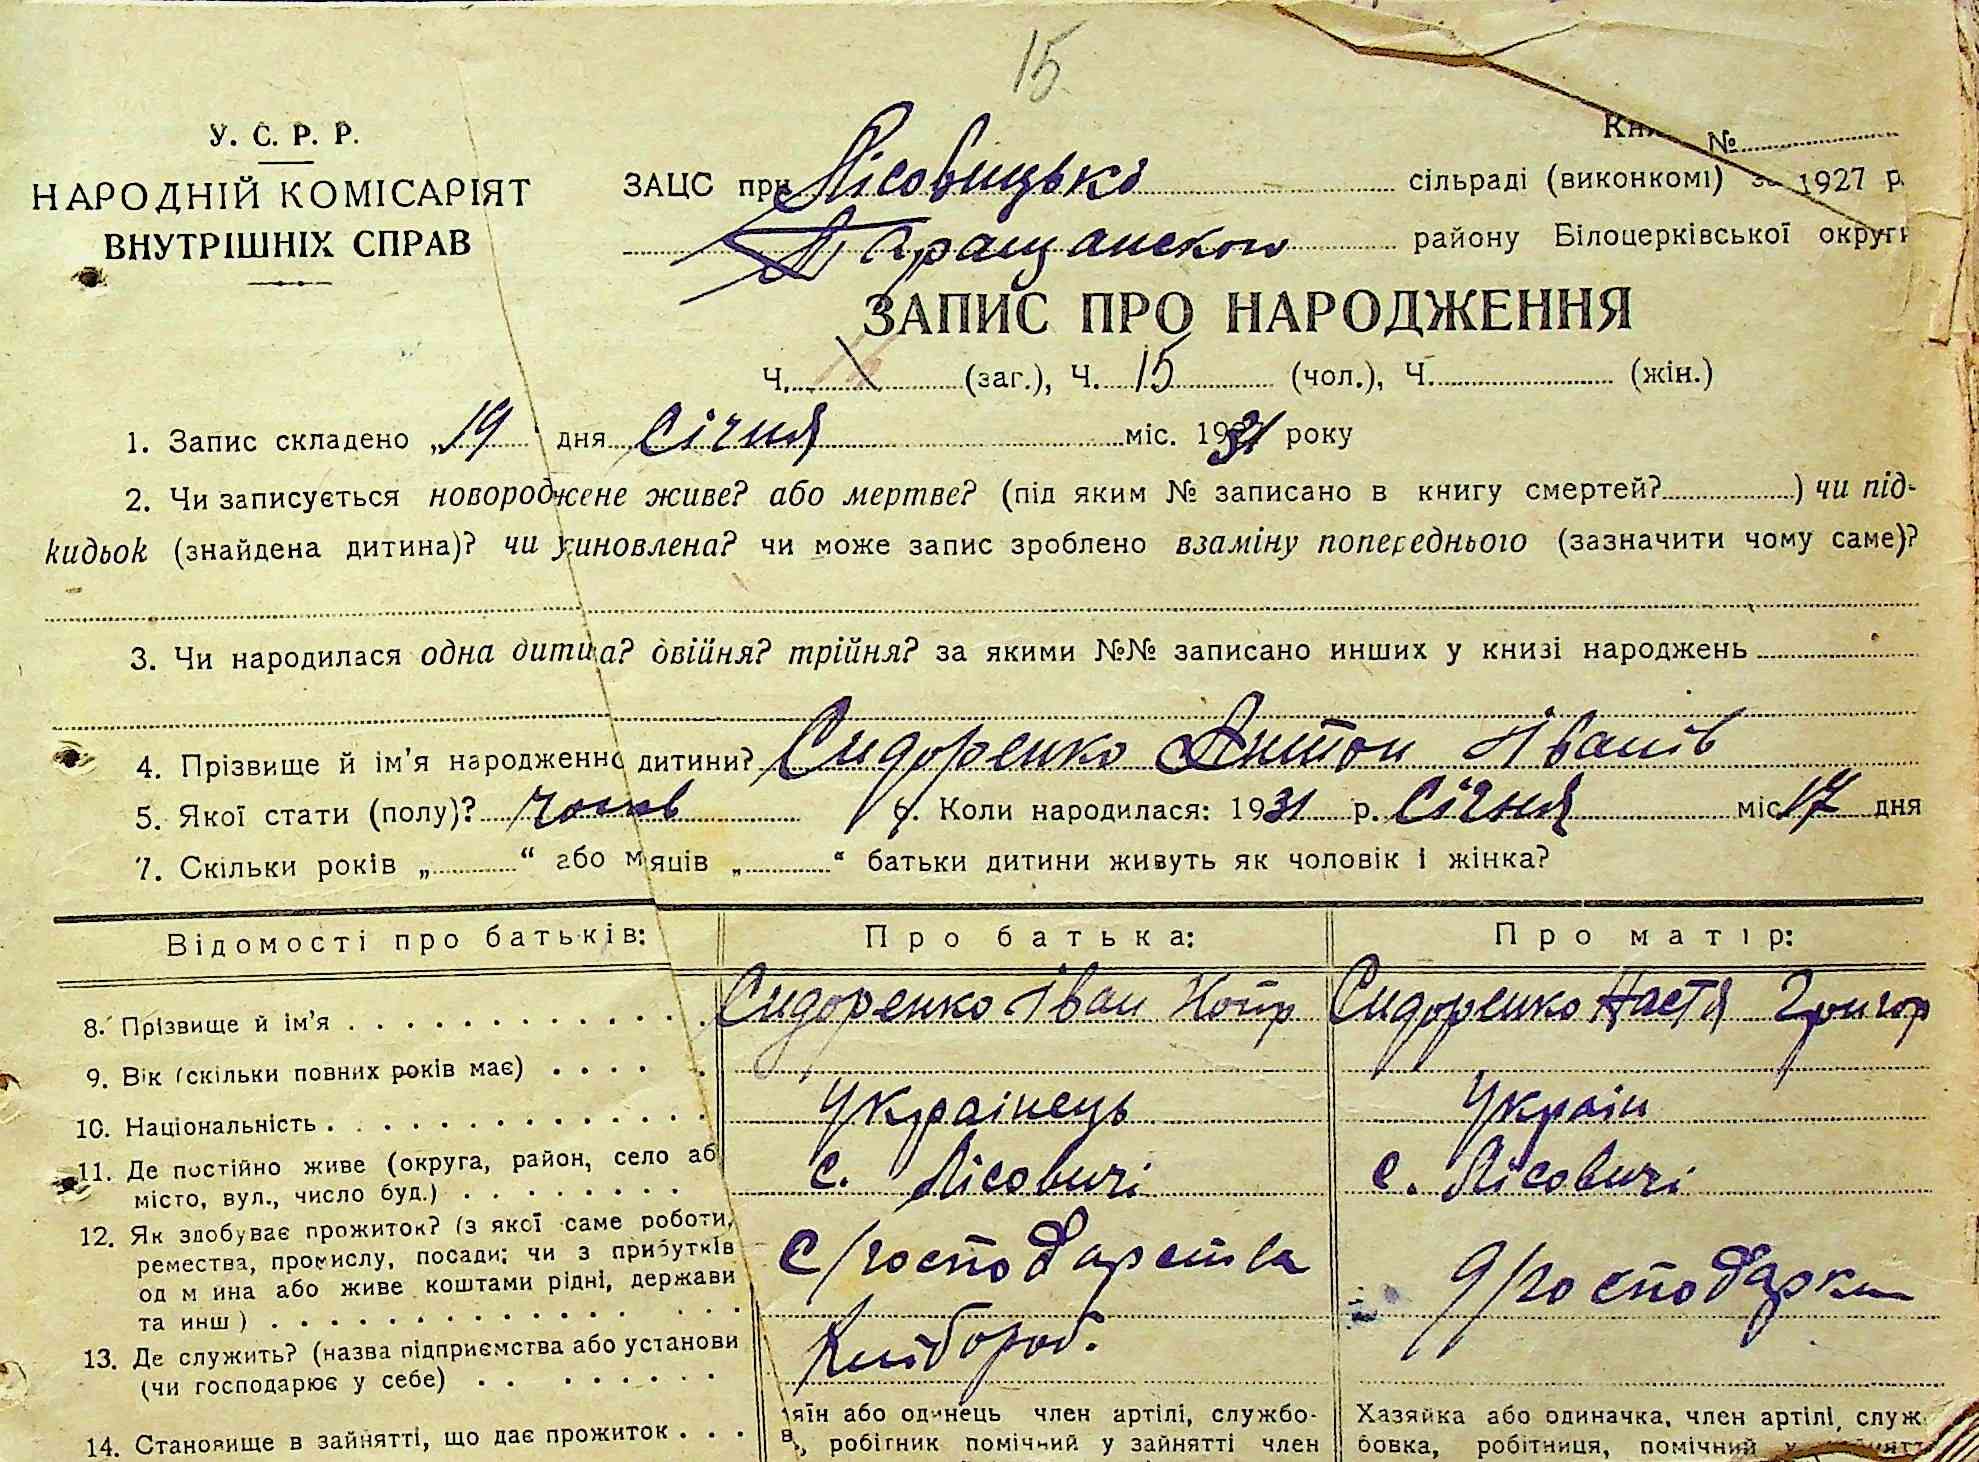 15
У. С. Р. Р.
НАРОДНІЙ КОМІСАРІЯТ
ВНУТРІШНІХ СПРАВ
№
ЗАЦС при Лісовицькі сільраді (виконкомі) за 1927 р.
Таращанского району Білоцерківської округи
ЗАПИС ПРО НАРОДЖЕННЯ
Ч. (заг.), Ч. 15 (чол.), Ч. (жін.)
1. Запис складено „19“ дня Січня міс. 1931 року
2. Чи записується новороджене живе? або мертве? (під яким № записано в книгу смертей?) чи під-
кидьок (знайдена дитина)? чи усиновлена? чи може запис зроблено взаміну попереднього (зазначити чому саме)?
3. Чи народилася одна дитина? двійня? трійня? за якими №№ записано инших у книзі народжень
4. Прізвище й ім'я народженно дитини? Сидоренко Антон Іванів
5. Якої стати (полу)? чолов 6. Коли народилася: 1931 р. Січня міс 17 дня
7. Скільки років „ “ або м'яців „ “ батьки дитини живуть як чоловік і жінка?
Відомості про батьків: Про батька: Про матір:
8. Прізвище й ім'я Сидоренко Іван Сидоренко Настя Григор
9. Вік (скільки повних років має)
10. Національність Українець Україн
11. Де постійно живе (округа, район, село або с. Лісовичі с. Лісовичі
місто, вул., число буд.)
12. Як здобуває прожиток? (з якої саме роботи, С/господарства Д/господарка
ремества, промислу, посади; чи з прибутків
од м ина або живе коштами рідні, держави
та инш)
13. Де служить? (назва підприємства або установи Хлібороб.
(чи господарює у себе)
14. Становище в зайнятті, що дає прожиток
яїн або одинець член артілі, службо-
в, робітник помічний у зайнятті член
Хазяйка або одиначка, член артілі, служ
бовка, робітниця, помічний у зайнятт